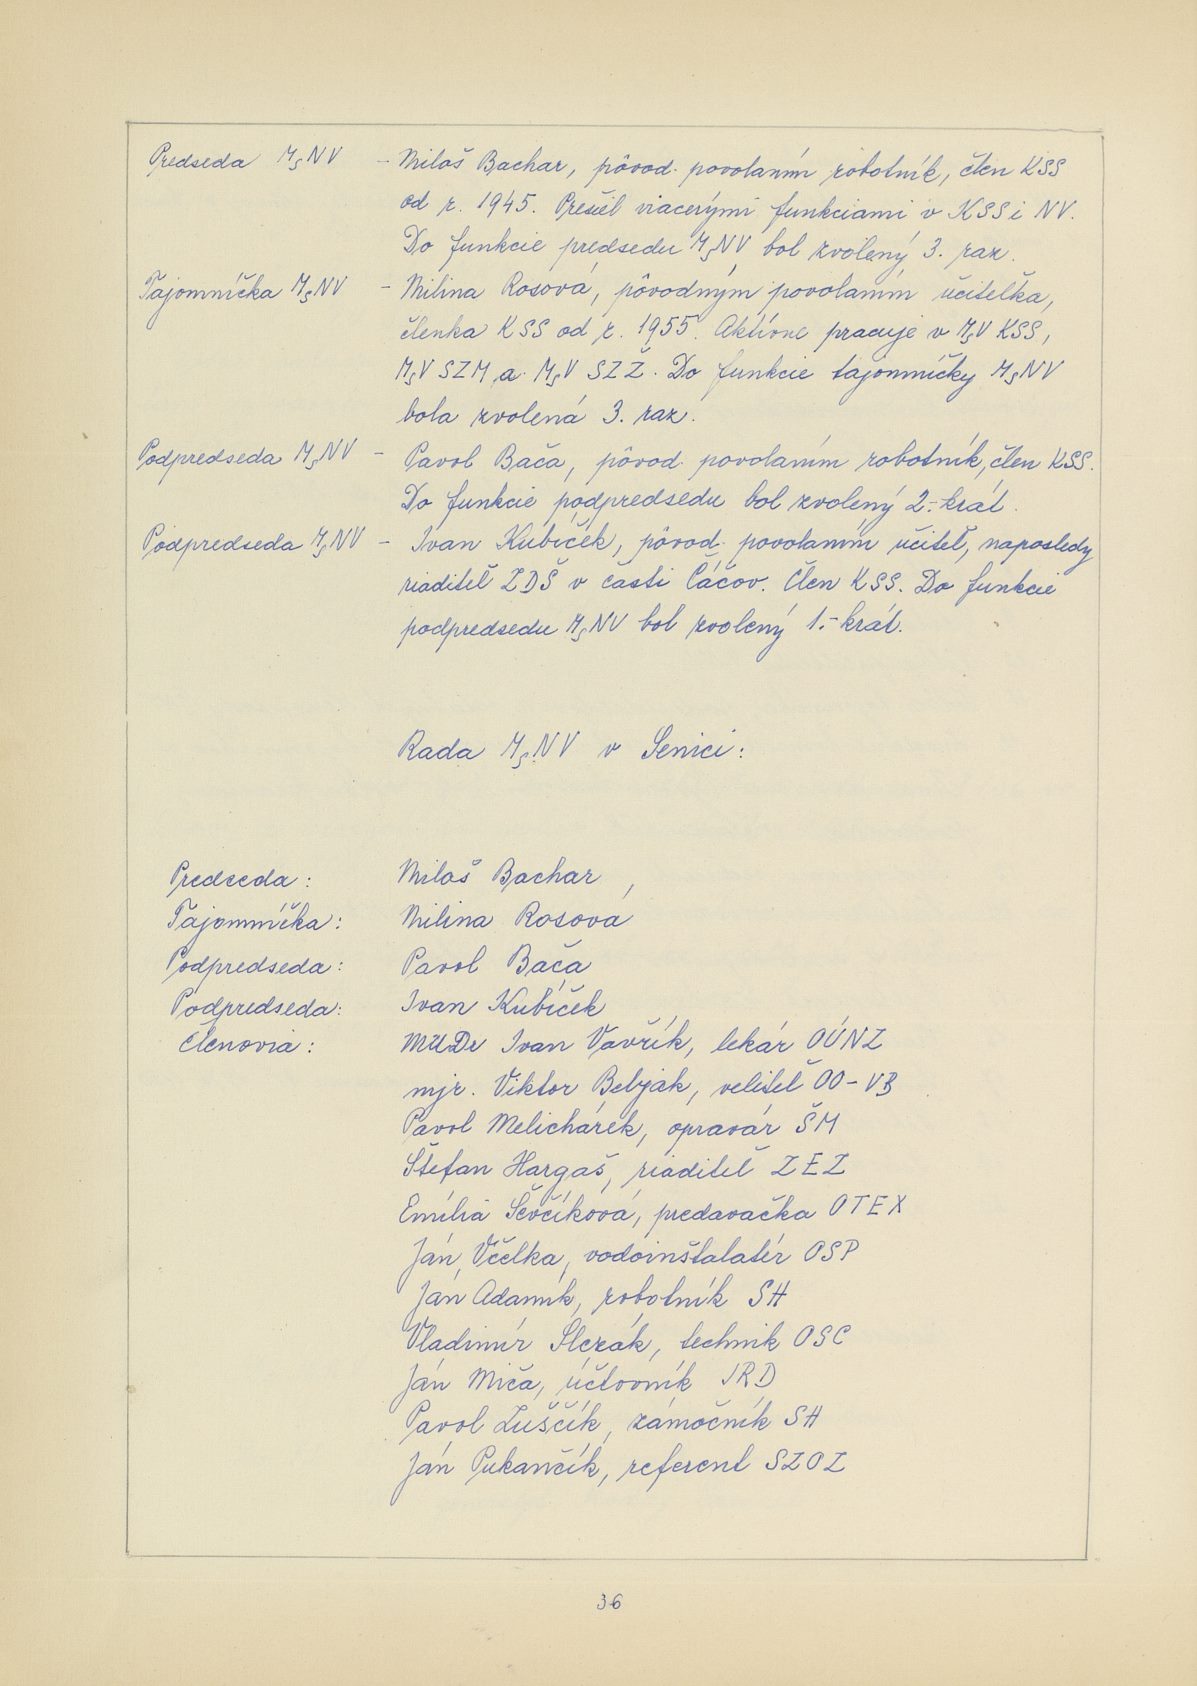 Predseda MsNV - Miloš Bachar, pôvod. povolaním robotník, člen KSS
od r. 1945. Prešiel viacerými funkciami v KSS i NV.
Do funkcie predsedu MsNV bol zvolený 3. raz.
Tajomníčka MsNV - Milina Rosová, pôvodným povolaním učiteľka,
členka KSS od r. 1955. Aktívne pracuje v MsV KSS,
MsV SZM a MsV SZŽ. Do funkcie tajomníčky MsNV
bola zvolená 3. raz.
Podpredseda MsNV - Pavol Bača, pôvod. povolaním robotník, člen KSS.
Do funkcie podpredsedu bol zvolený 2.-krát.
Podpredseda MsNV - Ivan Kubíček, pôvod. povolaním učiteľ, naposledy
riaditeľ ZDŠ v časti Čáčov. Člen KSS. Do funkcie
podpredsedu MsNV bol zvolený 1.-krát.
Rada MsNV v Senici:
Predseda: Miloš Bachar
Tajomníčka: Milina Rosová
Podpredseda: Pavol Bača
Podpredseda: Ivan Kubíček
Členovia: MUDr Ivan Vavřík, lekár OÚNZ
mjr. Viktor Bebjak, veliteľ OO-VB
Pavol Melichárek, opravár ŠM
Štefan Hargaš, riaditeľ ZEZ
Emília Ševčíková, predavačka OTEX
Ján Včelka, vodoinštalatér OSP
Ján Adamík, robotník SH
Vladimír Slezák, technik OSC
Ján Miča, účtovník JRD
Pavol Luščík, zámočník SH
Ján Pukančík, referent SZOZ
36